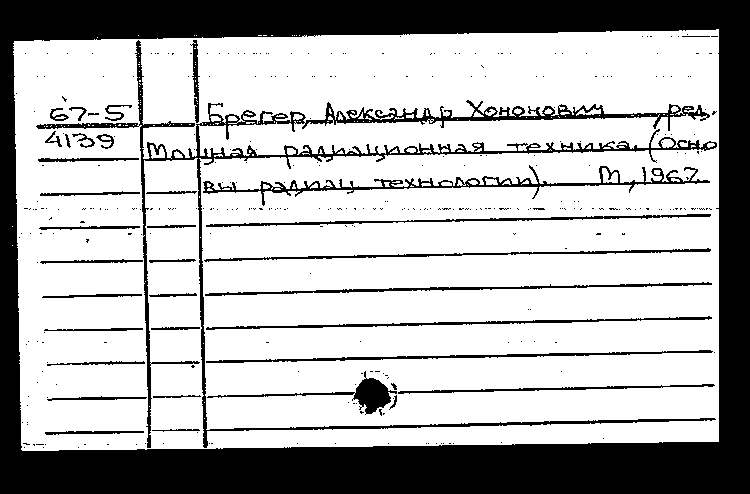 67-5 Брегер, Александр Хононович, ред.
4139 Мощная радиационная техника. (Осно
вы радиац технологии). М., 1967